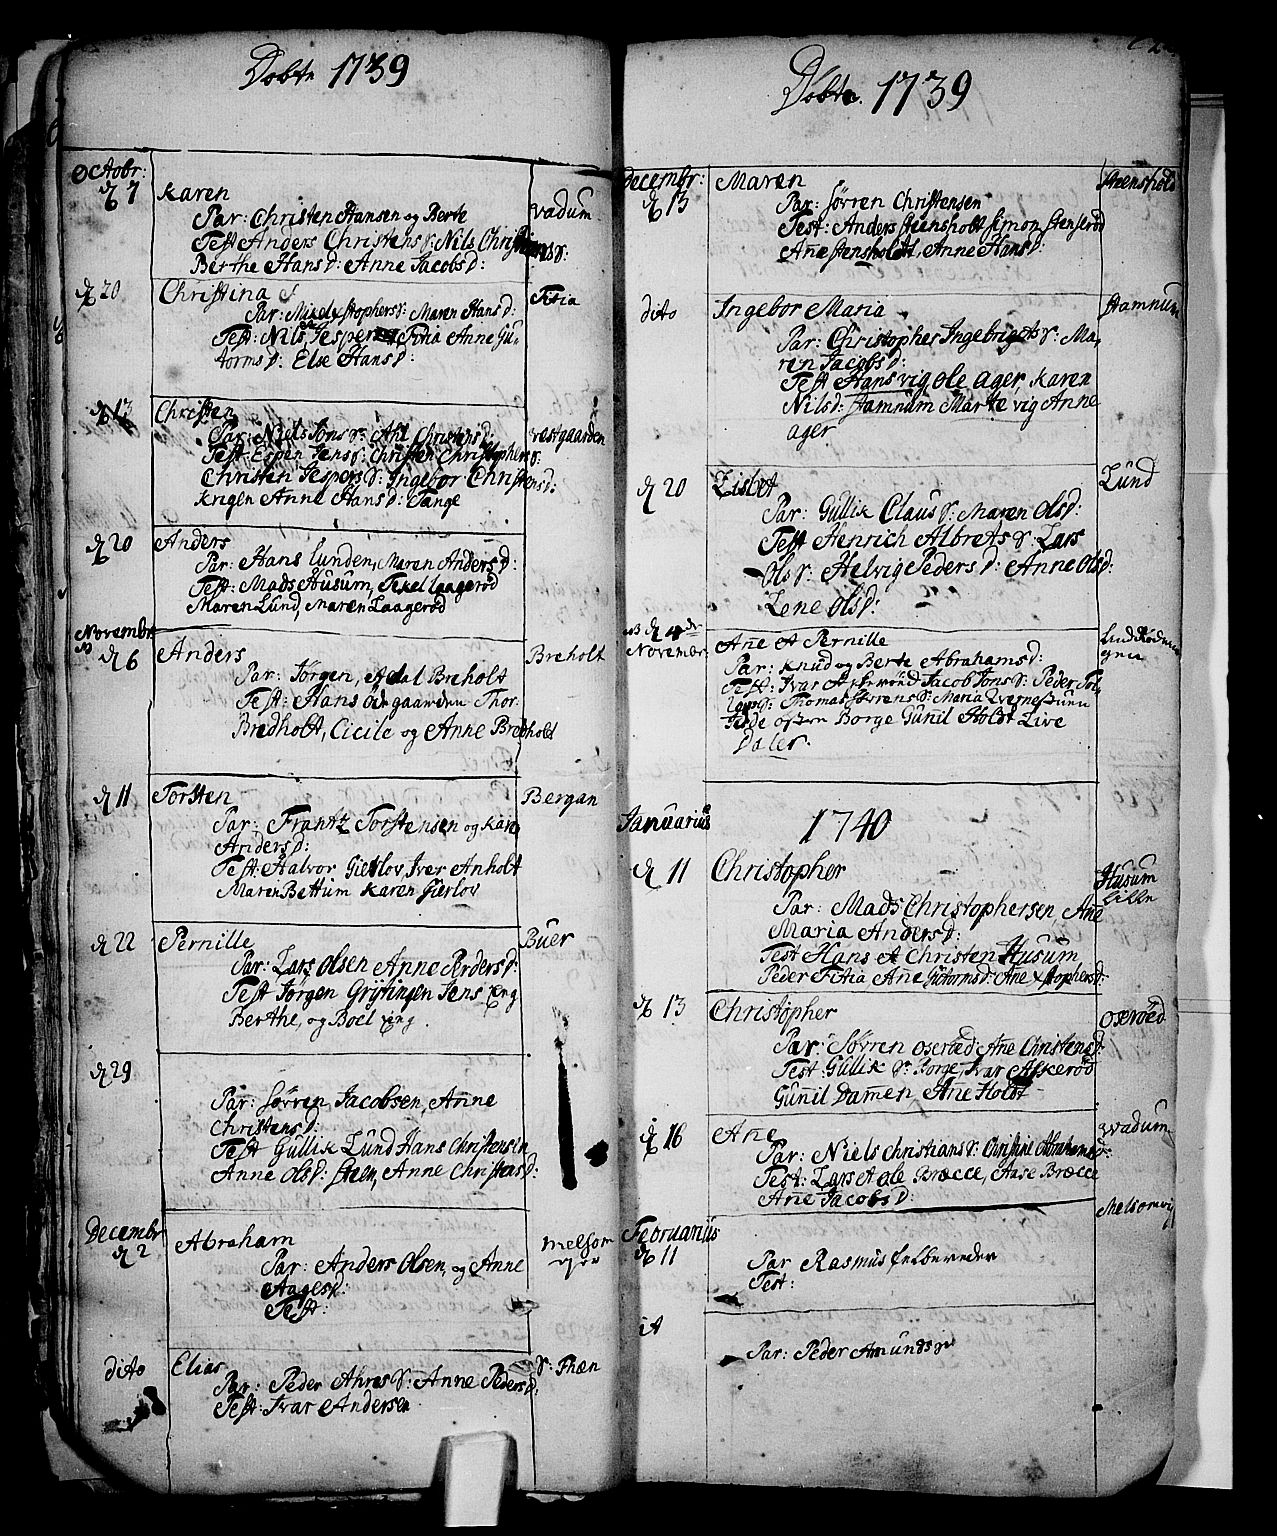 Døbte 1739
Octobr:
d 7 Karen Vadum
Par: Christen Hansen og Berte
Test Anders Christens S: Nils Christi
Berthe Hans D: Anne Jacobs D:
d 20 Christina Fitia
Par: Maren Hans D:
Test: Nils Jespers Fitia Anne Gu-
torms D: Else Hans D:
d 13 Christen Vestgaarden
Par: Niels Jons S: Ane Christens D:
Test: Espen Jens S: Christen Christophers S:
Christen Jespers S: Ingebor Christens D:
Krigen Anne Hans D: Tange
d 20 Anders
Par: Hans Lunden, Maren Anders D:
Test: Mads Husum, Axel Laagerød
Maren Lund, Maren Laagerød
Novembr
d 6 Anders Breholt
Par: Jørgen, Adal Breholt
Test: Hans Ødegaarden Thor
Bredholt, Cicile og Anne Bredholt
d 11 Torsten Bergan
Par: Frantz Torstensen og Karen
Anders D:
Test: Halvor Gierlov, Iver Anholt
Maren Bettum Karen Gierlov
d 22 Pernille Buer
Par: Lars Olsen Anne Peders D:
Test Jørgen Grytingen Jens
Berthe, og Boel
d 29
Par: Sørren Jacobsen, Anne
Christens D:
Test Gullik Lund Hans Christensen
Anne Ols D: Steen, Anne Christens D:
Decembr
d 2 Abraham Melsom
Par: Anders Olsen, og Anne
Aages D:
Test:
dito Elias S: Fhæn
Par: Peder Ahres S: Anne Peders D:
Test: Ivar Andersen
Døbte 1739
Decembr: Maren Steensholt
d 13 Par: Sørren Christensen
Test: Anders Steensholt Simon Stenserød
Ane Stensholdt, Anne Hans D:
dito Ingebor Maria Hamnum
Par: Christopher Ingebrigts S: Ma-
ren Jacobs D:
Test Hans Vig Ole Ager, Karen
Nils D: Hamnum Marte Vig Anne
Ager
d 20 Lisbet Lund
Par: Gullik Claus S: Maren Ols D:
Test Henrich Albrets S: Lars
Ols S: Helvig Peders D: Anne Ols D:
Lene Ols D:
NB d 4de
Novemær: Ane & Pernille
Par: Knud og Berte Abrahams D:
Test: Ivar Askerød Jacob Jons S: Peder Tol-
Thomas Sørrens S: Maria
Borge Gunil Holdt Live
Daler.
Januarius 1740
d 11 Christopher Husum
Lille
Par: Mads Christophersen Ane
Maria Anders D:
Test Hans & Christen Husum,
Peder Fitia Ane Gutorms D: Ane Xstophers D:
d 13 Christopher Oserøed
Par: Sørren Oserøed Ane Christens D:
Test: Gullik S: Borge, Ivar Askerød
Gunil Damen, Ane Holdt
d 16 Ane Vadum
Par: Niels Christians S: Christine Abrahams D:
Test: Lars & Ole Bræcce, Aase Bræcce
Ane Jacobs D:
Februarius Melsomvig
d 11
Par Rasmus
Test:
Par: Peder Amunds